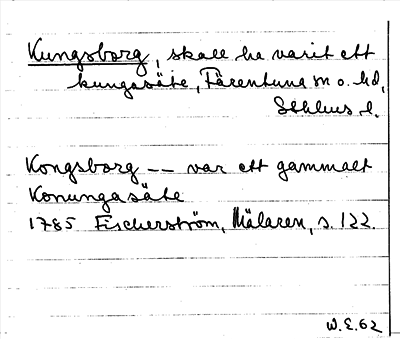 Kungsborg, skall ha varit ett
kungasäte, Färentuna sn o. hd,
Sthlms l.
Kongsborg -- var ett gammalt
Konungasäte
1785 Fischerström, Mälaren, s. 122.
W.E. 62